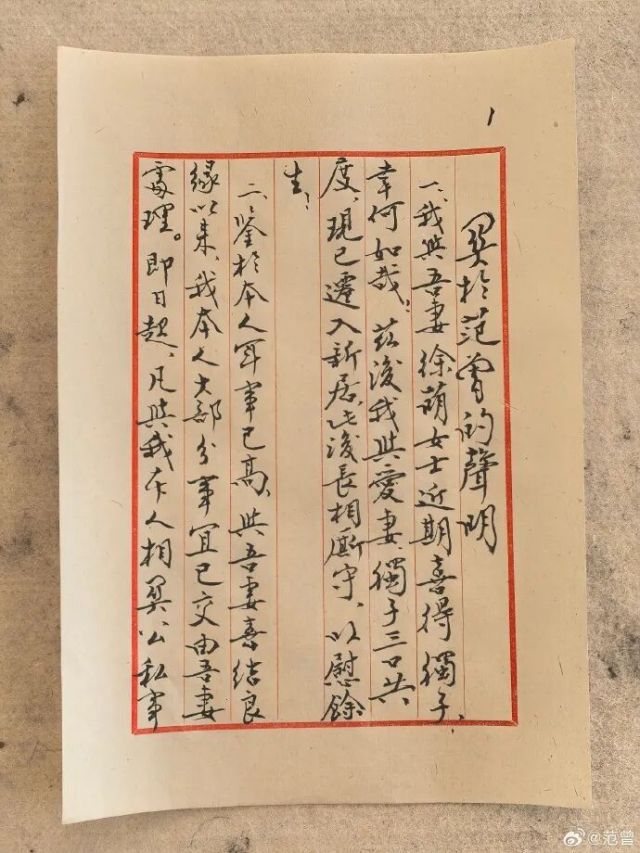 1
關於范曾的聲明
一、我與吾妻徐萌女士近期喜得獨子，
幸何如哉！茲後我與愛妻、獨子三口共
度，現已遷入新居，此後長相廝守，以慰餘
生！
二、鑒於本人年事已高，與吾妻喜結良
緣以來，我本人大部分事宜已交由吾妻
處理。即日起，凡與我本人相關公私事
@范曾